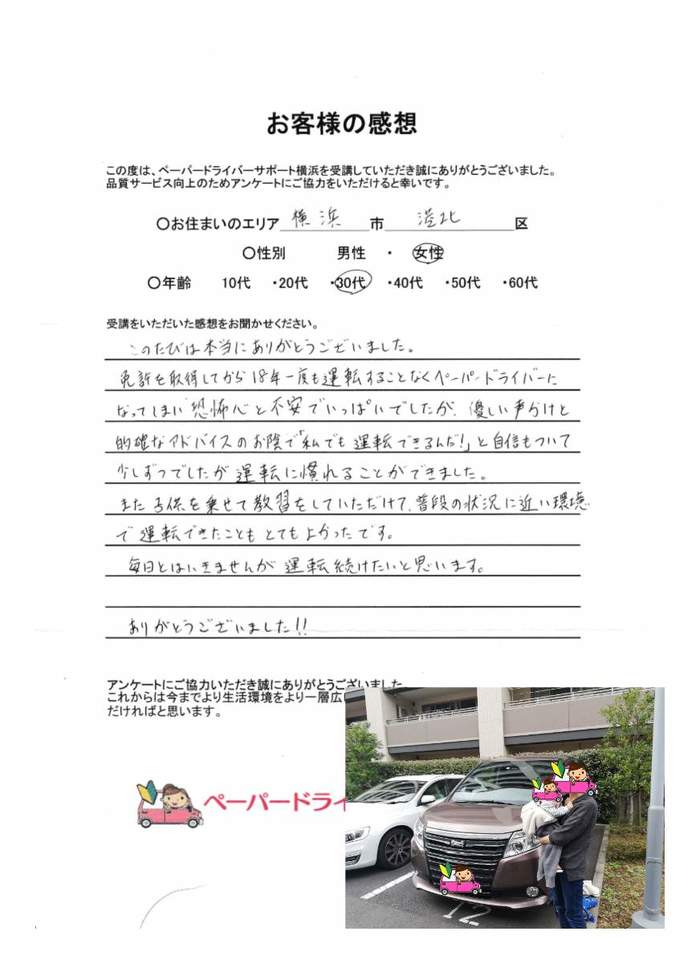 お客様の感想
この度は、ペーパードライバーサポート横浜を受講していただき誠にありがとうございました。
品質サービス向上のためアンケートにご協力をいただけると幸いです。
〇お住まいのエリア 横浜 市 港北 区
〇性別 男性 ・ 女性
〇年齢 10代 ・20代 ・30代 ・40代 ・50代 ・60代
受講をいただいた感想をお聞かせください。
このたびは本当にありがとうございました。
免許を取得してから18年一度も運転することなくペーパードライバーに
なってしまい恐怖心と不安でいっぱいでしたが、優しい声かけと
的確なアドバイスのお陰で「私でも運転できるんだ!」と自信もついて
少しずつでしたが運転に慣れることができました。
また子供を乗せて教習をしていただけて、普段の状況に近い環境
で運転できたこともとてもよかったです。
毎日とはいきませんが運転続けたいと思います。
ありがとうございました!!
アンケートにご協力いただき誠にありがとうございました
これからは今までより生活環境をより一層広
だければと思います。
ペーパードライ
12